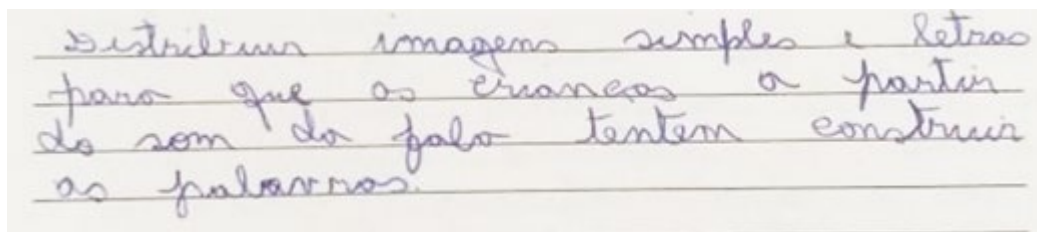 Distribuir imagens simples e letras
para que as crianças a partir
do som da fala tentem construir
as palavras.